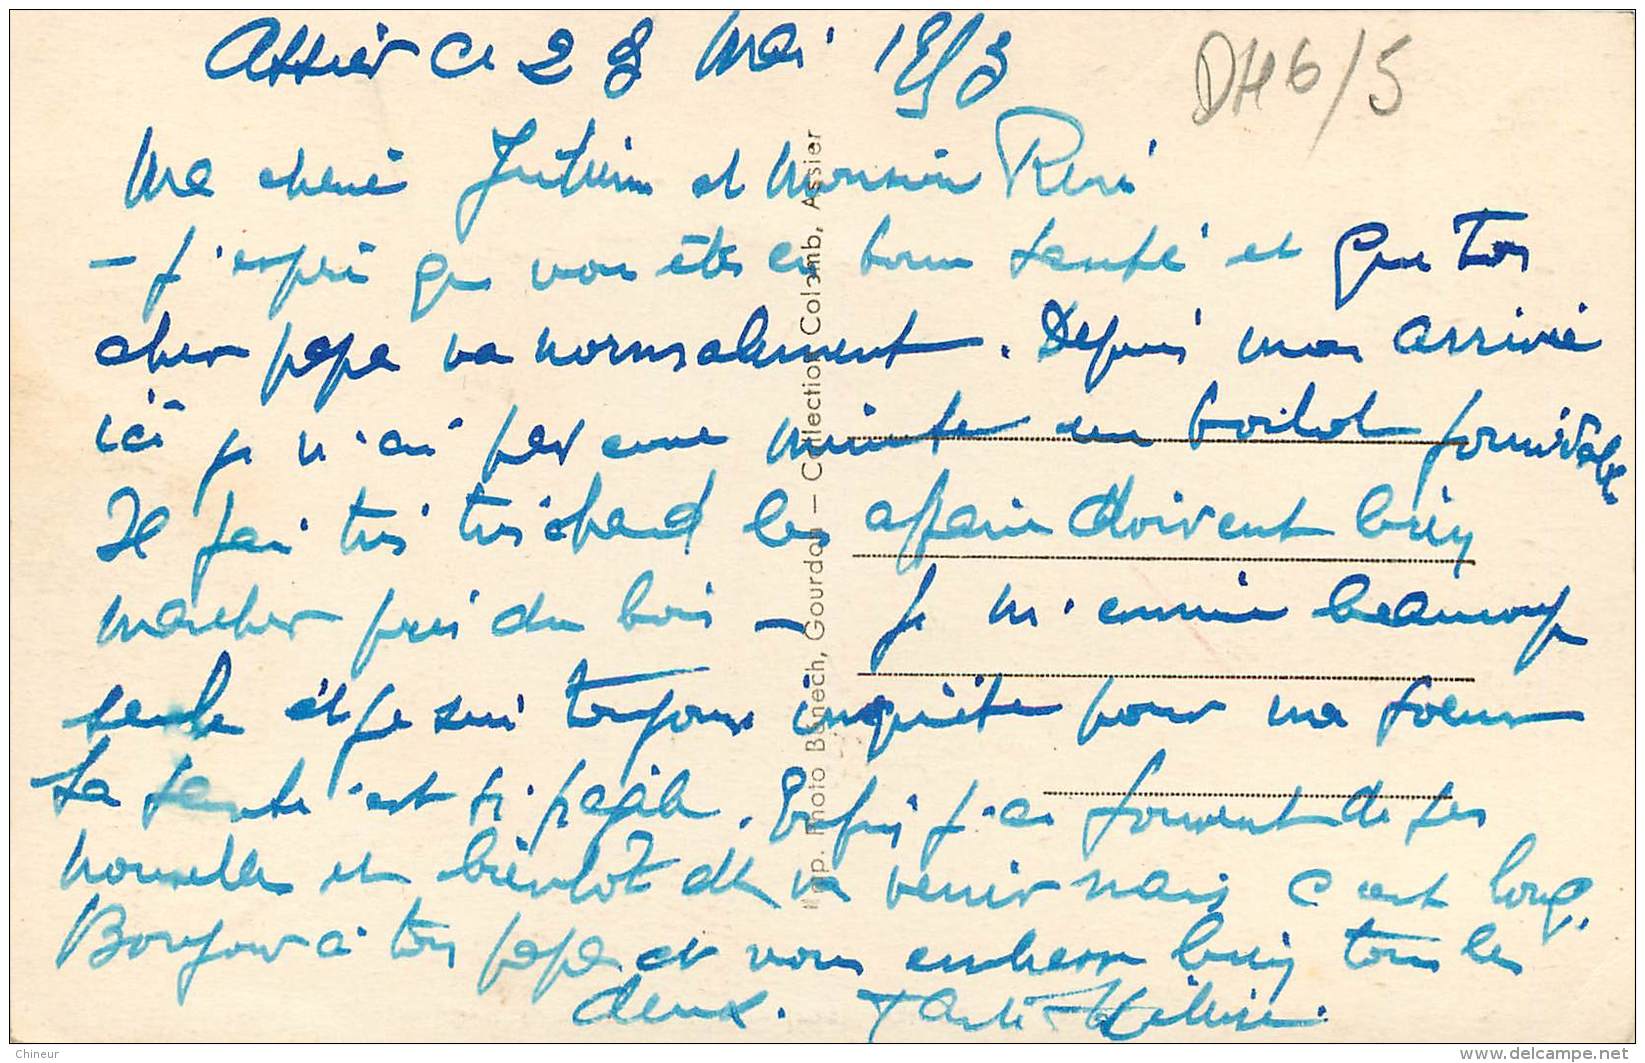 Assier ce 28 Mai 1953
DH6/5
Ma cherie et Monsieur René
- j'espere que vous êtes en bonne santé et que ton
cher papa va normalement. Depuis mon arrivée
ici je n'ai pas une minute un boulot formidable
Il fai tres tres chaud les affaires doivent bien
marcher près du bois - Je m'ennuie beaucoup
seule et je suis toujours inquiete pour ma soeur
Sa sante est si fragile. Enfin j'ai souvent de ses
nouvelles et bientot elle va venir mais c'est long.
Bonjour à ton papa et vous embrasse bien tous les
deux. Tante
Imp. Photo Bénech, Gourdon — Collection Colomb, Assier
Chineur
www.delcampe.net